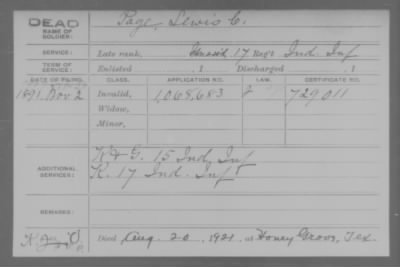 DEAD
NAME OF SOLDIER: Page, Lewis C.
SERVICE: Late rank, Unasid 17 Reg't Ind. Inf
TERM OF SERVICE: Enlisted , 1 Discharged , 1
DATE OF FILING. CLASS. APPLICATION NO. LAW. CERTIFICATE NO.
1891, Nov 2 Invalid, 1,068,683 729011
Widow,
Minor,
ADDITIONAL SERVICES: K & G. 15 Ind. Inf
K. 17 Ind. Inf
REMARKS:
Died, Aug. 20, 1921, at Honey Grove, Tex.